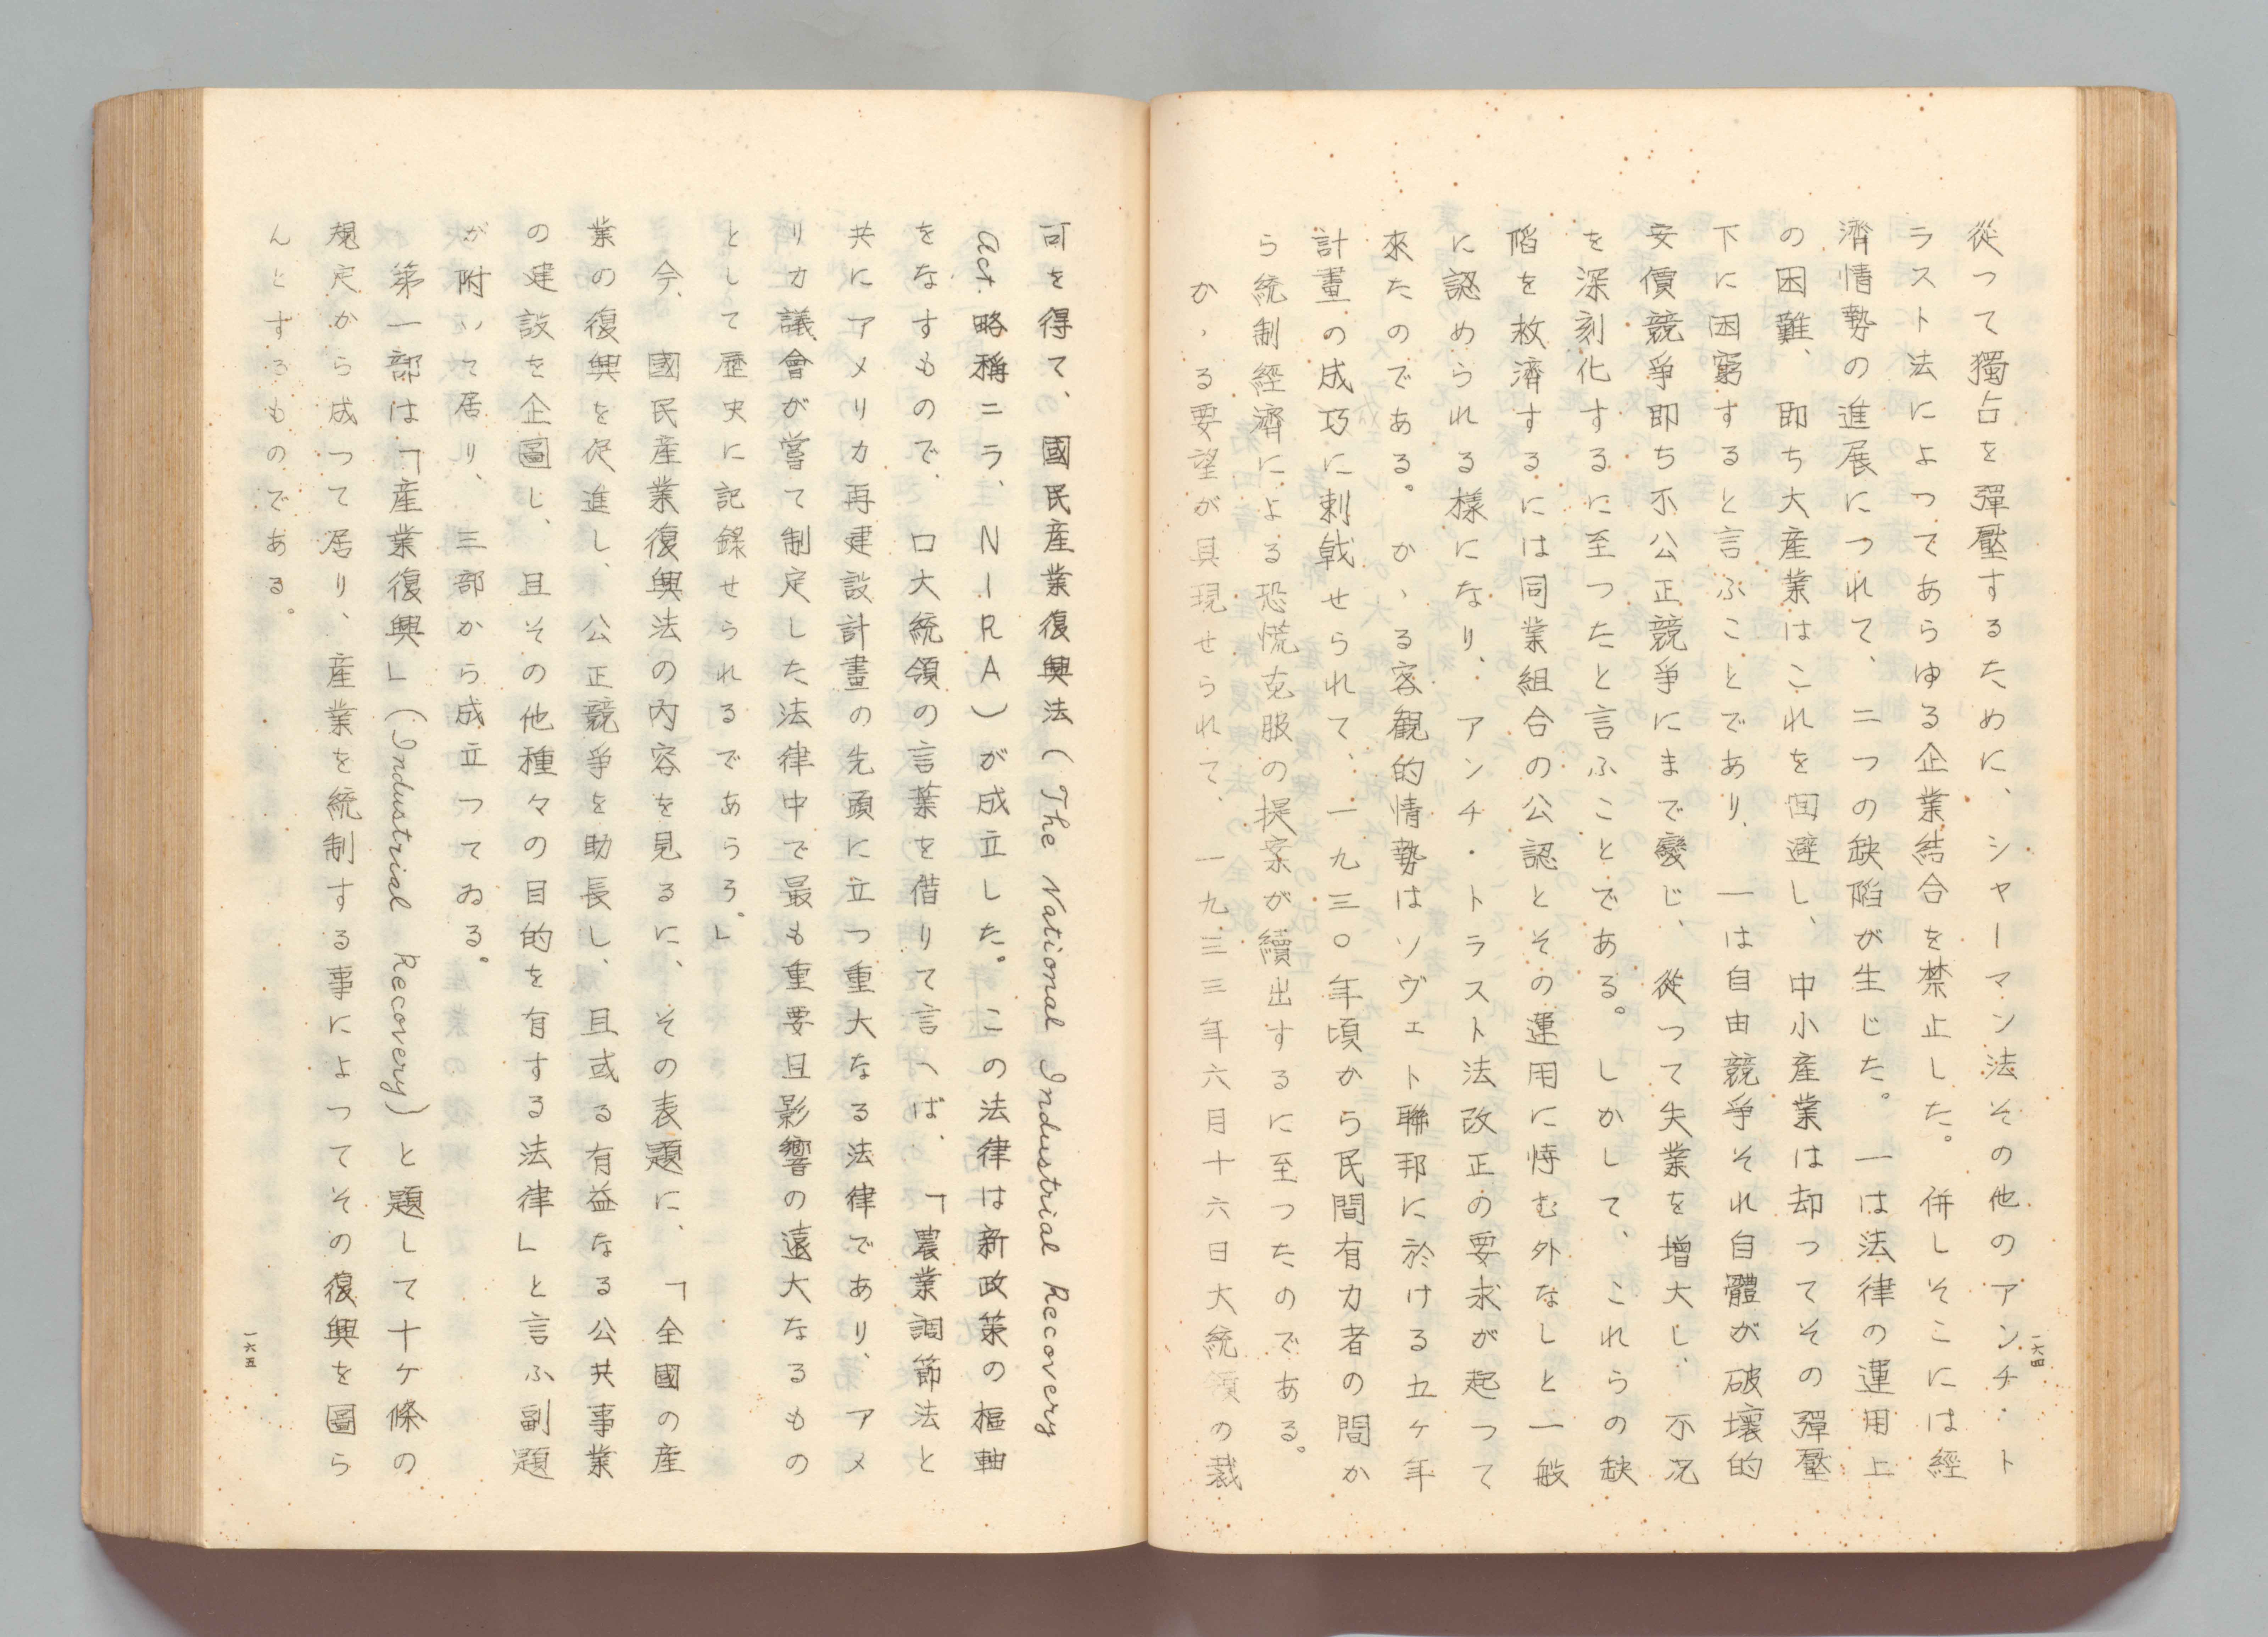 從つて獨占を彈壓するために、シャーマン法その他のアンチ・ト
ラスト法によつてあらゆる企業結合を禁止した。併しそこには經
濟情勢の進展につれて、二つの缺陷が生じた。一は法律の運用上
の困難、即ち大産業はこれを囘避し、中小産業は却つてその彈壓
下に困窮すると言ふことであり、一は自由競爭それ自體が破壞的
安價競爭即ち不公正競爭にまで變じ、從つて失業を增大し、不況
を深刻化するに至つたと言ふことである。しかして、これらの缺
陷を救濟するには同業組合の公認とその運用に恃む外なしと一般
に認められる樣になり、アンチ・トラスト法改正の要求が起つて
來たのである。かゝる客觀的情勢はソヴェト聯邦に於ける五ケ年
計畫の成功に刺戟せられて、一九三〇年頃から民間有力者の間か
ら統制經濟による恐慌克服の提案が續出するに至つたのである。
かゝる要望が具現せられて、一九三三年六月十六日大統領の裁
一六四
可を得て、國民産業復興法（The National Industrial Recovery
Act 略稱ニラ、NIRA）が成立した。この法律は新政策の樞軸
をなすもので、ロ大統領の言葉を借りて言へば、「農業調節法と
共にアメリカ再建設計畫の先頭に立つ重大なる法律であり、アメ
リカ議會が嘗て制定した法律中で最も重要且影響の遠大なるもの
として歷史に記錄せられるであらう。」
今、國民産業復興法の內容を見るに、その表題に、「全國の産
業の復興を促進し、公正競爭を助長し、且或る有益なる公共事業
の建設を企圖し、且その他種々の目的を有する法律」と言ふ副題
が附いて居り、三部から成立つてゐる。
第一部は「産業復興」（Industrial Recovery）と題して十ケ條の
規定から成つて居り、産業を統制する事によつてその復興を圖ら
んとするものである。
一六五